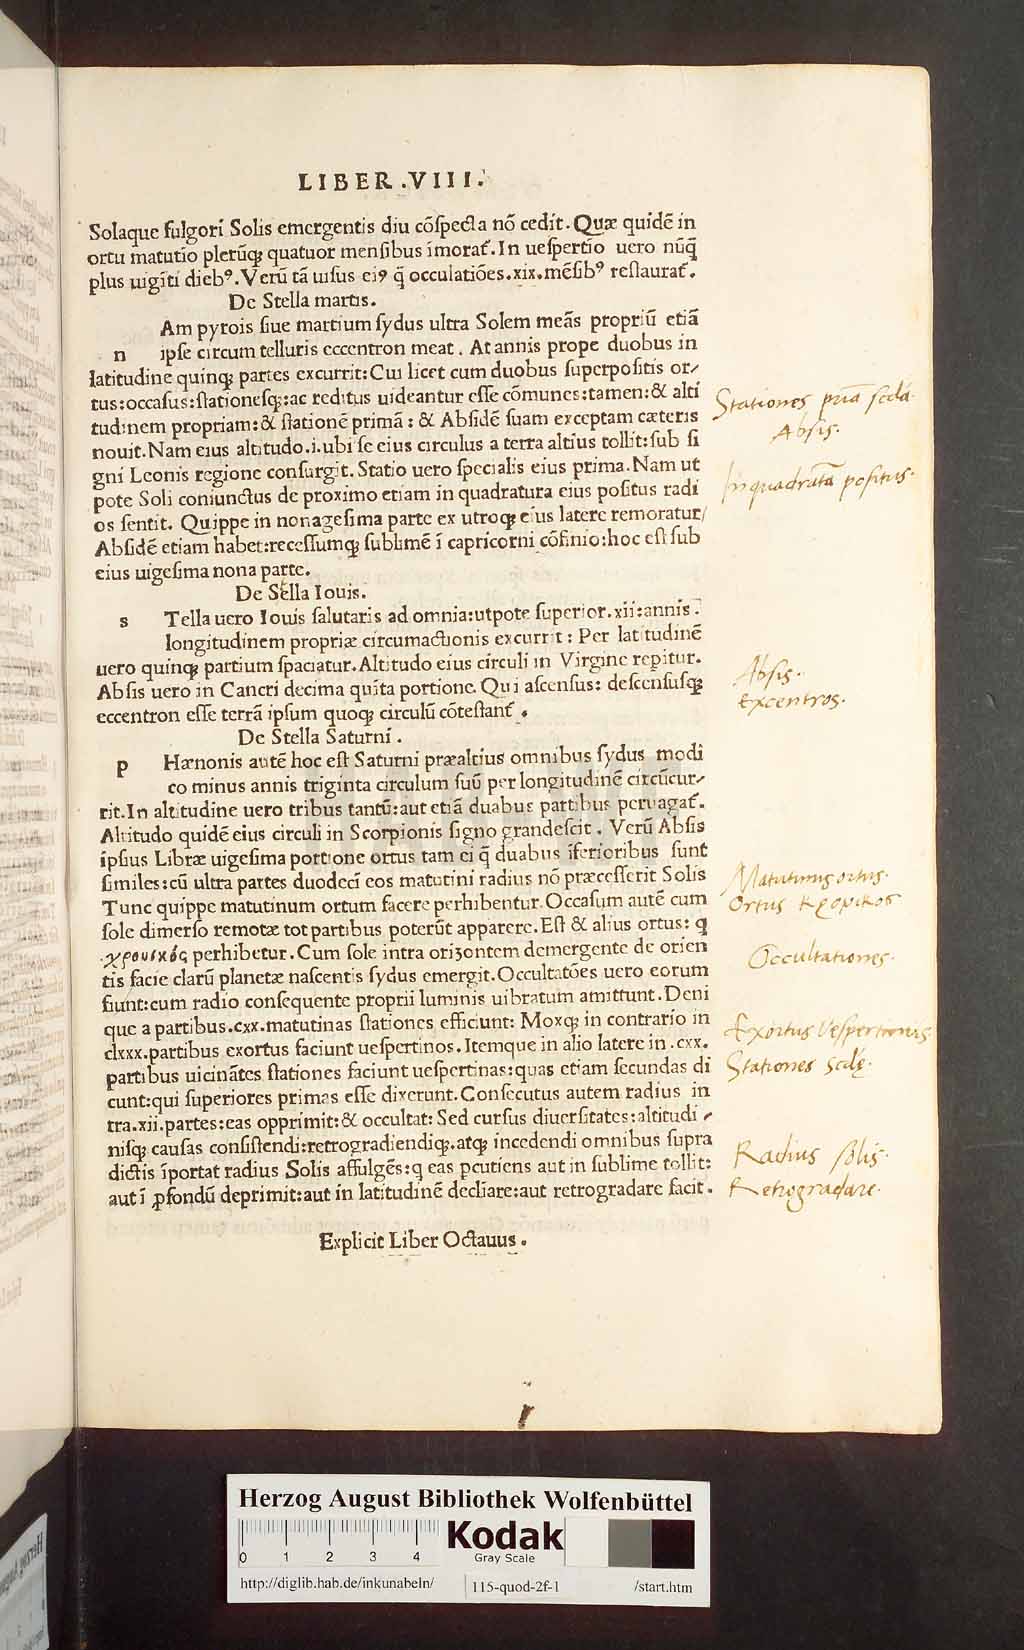 LIBER .VIII.
Solaque fulgori Solis emergentis diu cõspecta nõ cedit. Quæ quidẽ in
ortu matutio plerũq; quatuor mensibus ĩmorat᷑. In uespertio uero nũq̃
plus uigĩti dieb⁹. Verũ tã uisus ei⁹ q̃ occulatiões .xix. mẽsib⁹ restaurat᷑.
De Stella martis.
Am pyrois siue martium sydus ultra Solem meãs propriũ etiã
n ipse circum telluris eccentron meat. At annis prope duobus in
latitudine quinq; partes excurrit: Cui licet cum duobus superpositis or-
tus: occasus: stationesq;: ac reditus uideantur esse cõmunes: tamen: & alti
tudinem propriam: & stationẽ primã: & Absidẽ suam exceptam cæteris
nouit. Nam eius altitudo .i. ubi se eius circulus a terra altius tollit: sub si
gni Leonis regione consurgit. Statio uero specialis eius prima. Nam ut
pote Soli coniunctus de proximo etiam in quadratura eius positus radi
os sentit. Quippe in nonagesima parte ex utroq; eius latere remoratur/
Absidẽ etiam habet: recessumq; sublimẽ ĩ capricorni cõfinio: hoc est sub
eius uigesima nona parte.
De Sella Iouis.
s Tella uero Iouis salutaris ad omnia: utpote superior .xii: annis.
longitudinem propriæ circumactionis excurrit: Per latitudinẽ
uero quinq; partium spaciatur. Altitudo eius circuli in Virgine repitur.
Absis uero in Cancri decima quĩta portione. Qui ascensus: descensusq;
eccentron esse terrã ipsum quoq; circulũ cõtestant᷑.
De Stella Saturni.
p Hænonis autẽ hoc est Saturni præaltius omnibus sydus modi
co minus annis triginta circulum suũ per longitudinẽ circũcur-
rit. In altitudine uero tribus tantũ: aut etiã duabus partibus peruagat᷑.
Altitudo quidẽ eius circuli in Scorpionis signo grandescit. Verũ Absis
ipsius Libræ uigesima portione ortus tam ei q̃ duabus ĩferioribus sunt
similes: cũ ultra partes duodeci eos matutini radius nõ præcesserit Solis
Tunc quippe matutinum ortum facere perhibentur. Occasum autẽ cum
sole dimerso remotæ tot partibus poterũt apparere. Est & alius ortus: q
χρουικός perhibetur. Cum sole intra oriȝontem demergente de orien
tis facie clarũ planetæ nascentis sydus emergit. Occultatões uero eorum
fiunt: cum radio consequente proprii luminis uibratum amittunt. Deni
que a partibus .cxx. matutinas stationes efficiunt: Moxq; in contrario in
clxxx. partibus exortus faciunt uespertinos. Itemque in alio latere in .cxx.
partibus uicinãtes stationes faciunt uespertinas: quas etiam secundas di
cunt: qui superiores primas esse dixerunt. Consecutus autem radius in
tra .xii. partes: eas opprimit: & occultat: Sed cursus diuersitates: altitudi-
nisq; causas consistendi: retrogradiendiq;. atq; incedendi omnibus supra
dictis ĩportat radius Solis affulgẽs: q eas ꝑcutiens aut in sublime tollit:
aut ĩ ꝓfondũ deprimit: aut in latitudinẽ decliare: aut retrogradare facit.
Explicit Liber Octauus.
Stationes pria secda.
Absis.
In quadrata positus.
Absis.
Excentros.
Matutinus ortus.
Ortus Kροnικος
Occultationes.
Exortus Vespertinus
Stationes scdę.
Radius solis.
Retrogradare.
Herzog August Bibliothek Wolfenbüttel
0 1 2 3 4
Kodak
Gray Scale
http://diglib.hab.de/inkunabeln/ 115-quod-2f-1 /start.htm